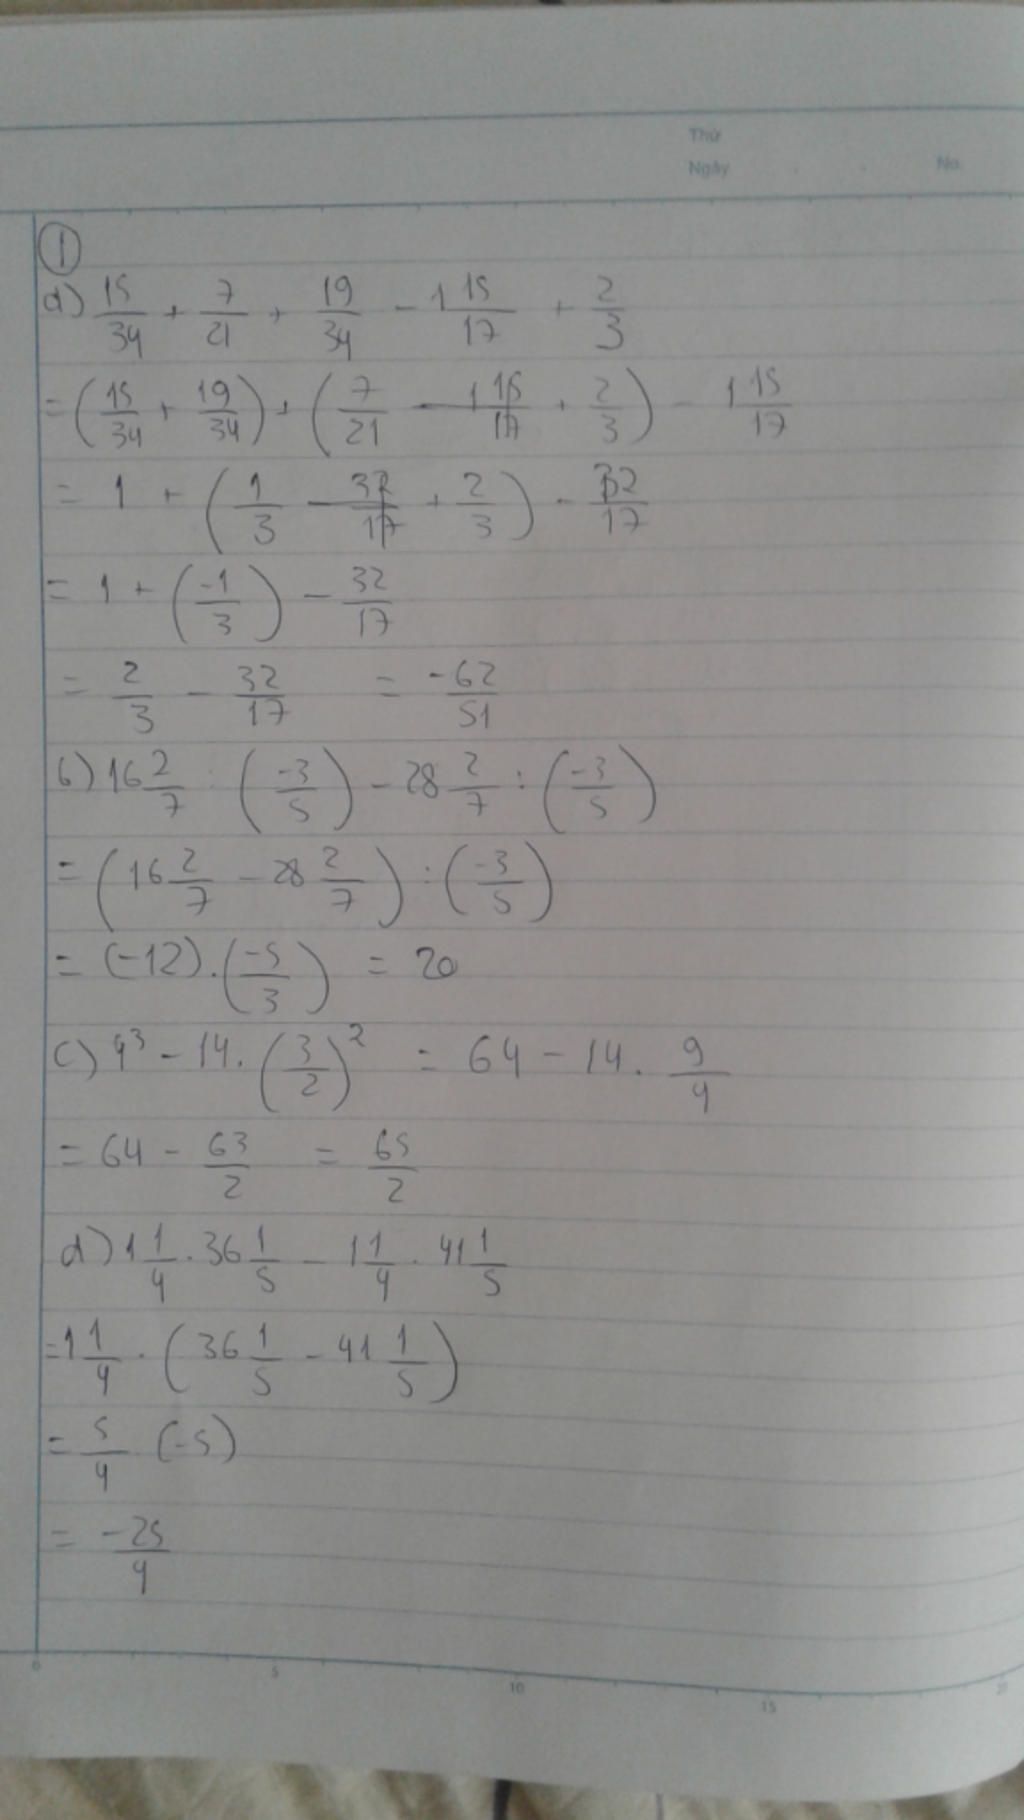 Thứ
Ngày . . No.
①
a) 15/34 + 7/21 + 19/34 - 1 15/17 + 2/3
= (15/34 + 19/34) + (7/21 - 1 15/17 + 2/3) - 1 15/17
= 1 + (1/3 - 32/17 + 2/3) - 32/17
= 1 + (-1/3) - 32/17
= 2/3 - 32/17 = -62/51
b) 16 2/7 : (-3/5) - 28 2/7 : (-3/5)
= (16 2/7 - 28 2/7) : (-3/5)
= (-12) . (-5/3) = 20
c) 4³ - 14 . (3/2)² = 64 - 14 . 9/4
= 64 - 63/2 = 65/2
d) 1 1/4 . 36 1/5 - 1 1/4 . 41 1/5
= 1 1/4 . (36 1/5 - 41 1/5)
= 5/4 . (-5)
= -25/4
0 5 10 15